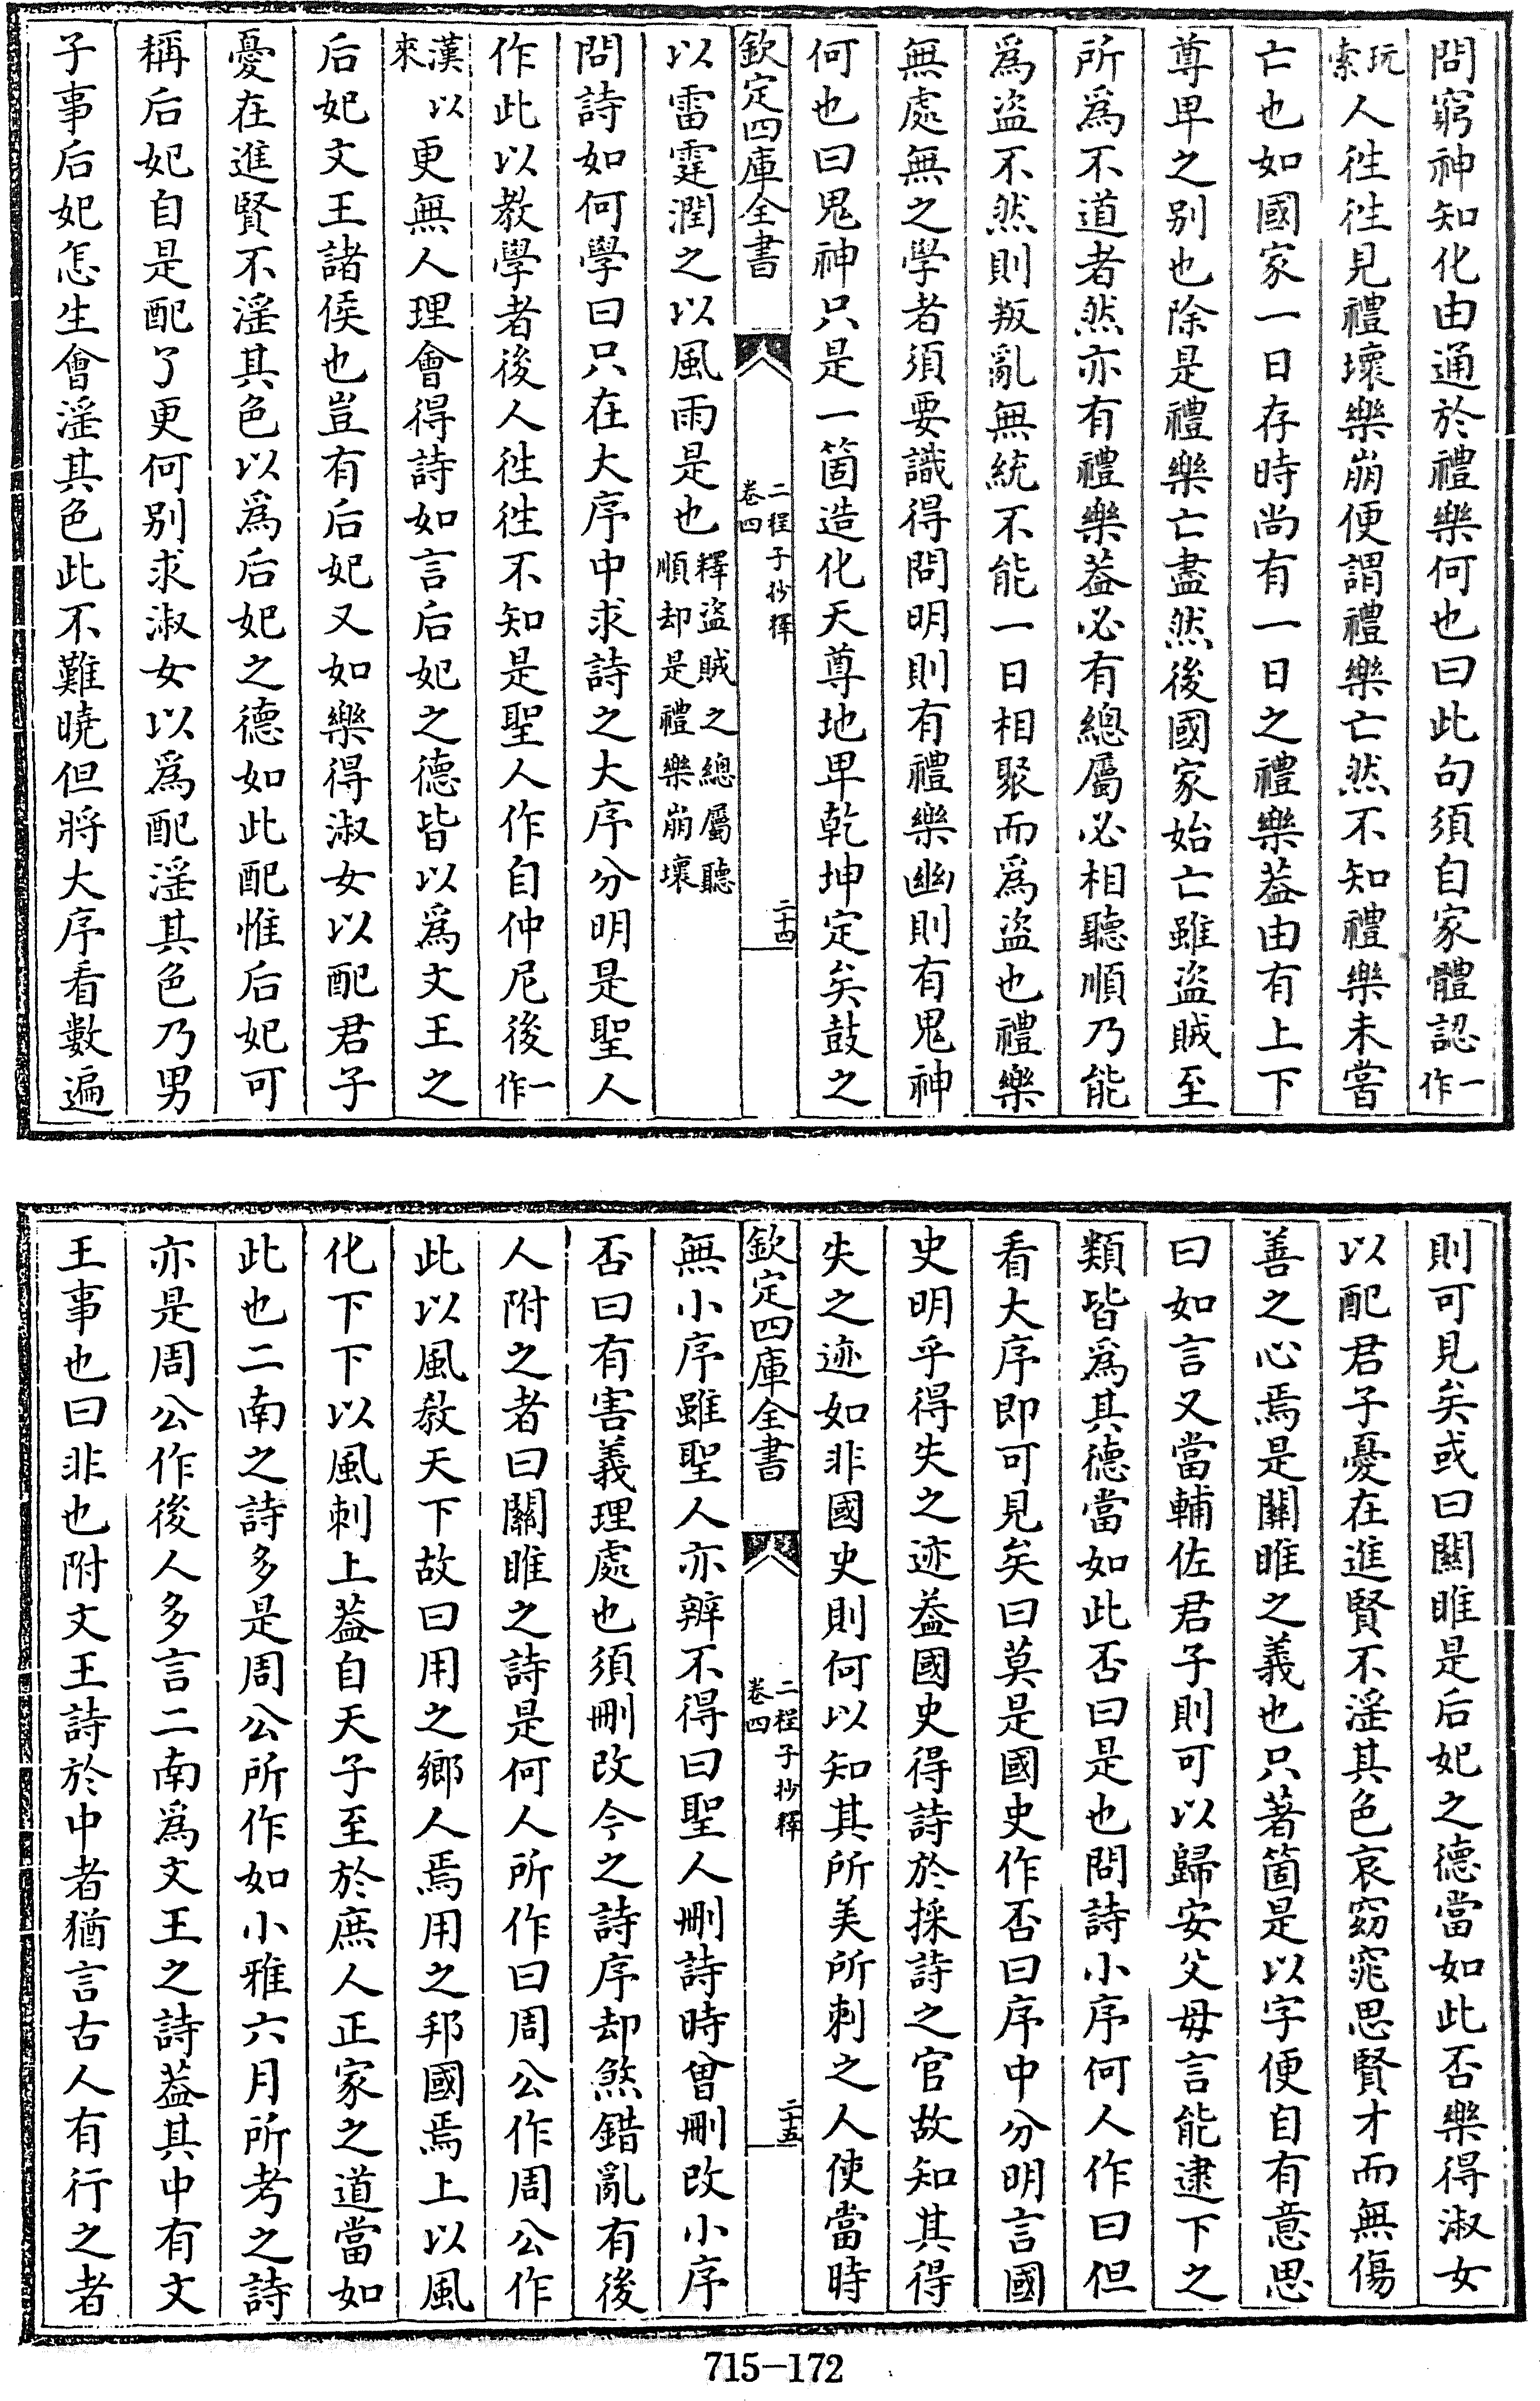 問窮神知化由通於禮樂何也曰此句須自家體認一作
玩索人徃徃見禮壞樂崩便謂禮樂亡然不知禮樂未嘗
亡也如國家一日存時尚有一日之禮樂葢由有上下
尊卑之别也除是禮樂亡盡然後國家始亡雖盜賊至
所為不道者然亦有禮樂葢必有總屬必相聽順乃能
為盜不然則叛亂無統不能一日相聚而為盜也禮樂
無處無之學者須要識得問明則有禮樂幽則有鬼神
何也曰鬼神只是一箇造化天尊地卑乾坤定矣鼓之
欽定四庫全書 二程子抄釋 卷四 二十四
以雷霆潤之以風雨是也釋盜賊之總屬聽順却是禮樂崩壞
問詩如何學曰只在大序中求詩之大序分明是聖人
作此以教學者後人徃徃不知是聖人作自仲尼後一作
漢以來更無人理會得詩如言后妃之德皆以為文王之
后妃文王諸侯也豈有后妃又如樂得淑女以配君子
憂在進賢不淫其色以為后妃之德如此配惟后妃可
稱后妃自是配了更何别求淑女以為配淫其色乃男
子事后妃怎生會淫其色此不難曉但將大序看數遍
則可見矣或曰關雎是后妃之德當如此否樂得淑女
以配君子憂在進賢不淫其色哀窈窕思賢才而無傷
善之心焉是關雎之義也只著箇是以字便自有意思
曰如言又當輔佐君子則可以歸安父母言能逮下之
類皆為其德當如此否曰是也問詩小序何人作曰但
看大序即可見矣曰莫是國史作否曰序中分明言國
史明乎得失之迹葢國史得詩於採詩之官故知其得
失之迹如非國史則何以知其所美所刺之人使當時
欽定四庫全書 二程子抄釋 卷四 二十五
無小序雖聖人亦辨不得曰聖人刪詩時曾刪改小序
否曰有害義理處也須刪改今之詩序却煞錯亂有後
人附之者曰關雎之詩是何人所作曰周公作周公作
此以風教天下故曰用之鄉人焉用之邦國焉上以風
化下下以風刺上葢自天子至於庶人正家之道當如
此也二南之詩多是周公所作如小雅六月所考之詩
亦是周公作後人多言二南為文王之詩葢其中有文
王事也曰非也附文王詩於中者猶言古人有行之者
715-172